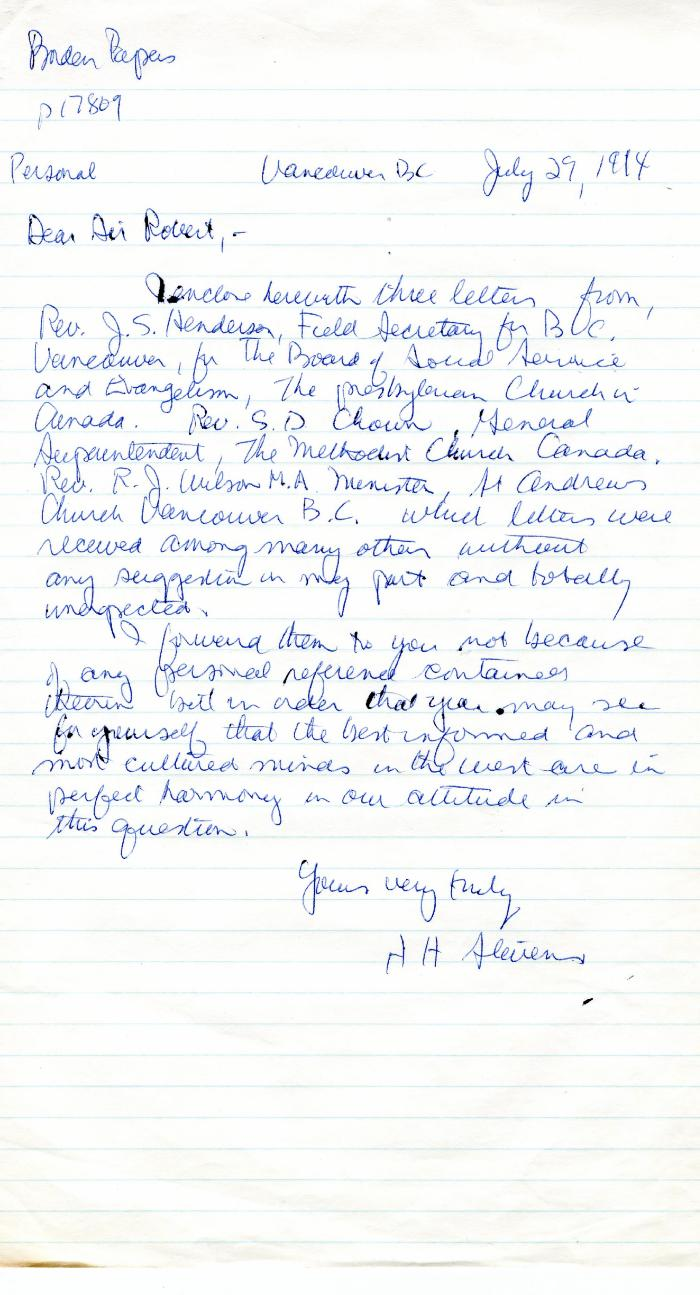 Borden Papers
p 17809
Personal Vancouver BC July 29, 1914
Dear Sir Robert,-
I enclose herewith three letters from,
Rev. J.S. Henderson, Field Secretary for B.C.
Vancouver, for The Board of Social Service
and Evangelism, The presbyterian Church in
Canada. Rev. S.D Chown, General
Superintendent, The Methodist Church Canada.
Rev. R.J. Wilson M.A. Minister, St Andrews
Church Vancouver B.C. which letters were
received among many others without
any suggestion on my part and totally
unexpected.
I forward them to you not because
of any personal reference contained
therein but in order that you may see
for yourself that the best informed and
most cultured minds in the west are in
perfect harmony in our attitude in
this question.
Yours very truly
H H Stevens